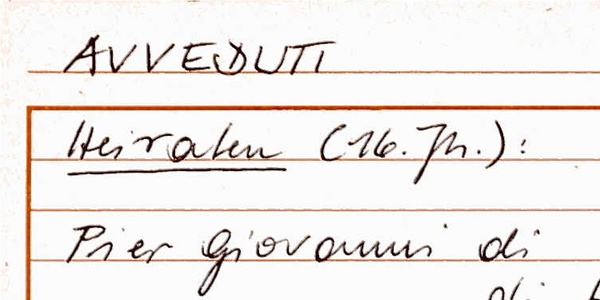 AVVEDUTI
Heiraten (16. Jh.):
Pier Giovanni di